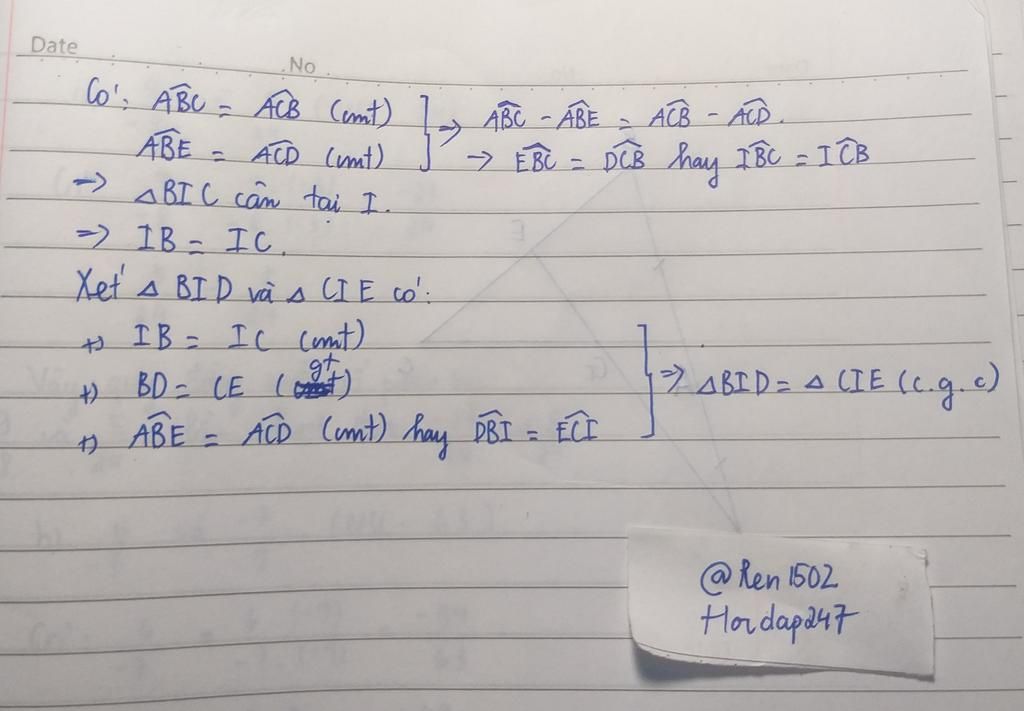 Date
No
Có: ABC^ = ACB^ (cmt) } => ABC^ - ABE^ = ACB^ - ACD^.
ABE^ = ACD^ (cmt) -> EBC^ = DCB^ hay IBC^ = ICB^
=> △BIC cân tại I.
=> IB = IC.
Xét △ BID và △ CIE có:
+) IB = IC (cmt)
+) BD = CE (gt)
+) ABE^ = ACD^ (cmt) hay DBI^ = ECI^ } => △BID = △ CIE (c.g.c)
@Ren1502
Hoidap247